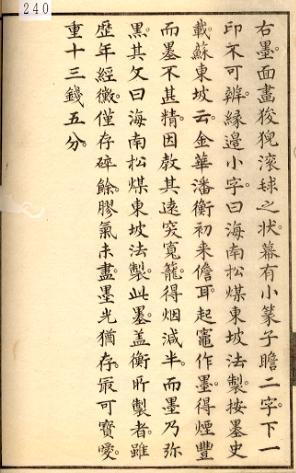 240
右墨面畫狻猊滾毬之狀。幕有小篆子瞻二字。下一
印不可辨。緣邊小字曰海南松煤東坡法製。按墨史
載蘇東坡云金華潘衡初来儋耳起竈作墨。得煙豐
而墨不甚精。因教其遠突寬籠。得烟減半。而墨乃弥
黑。其文曰海南松煤東坡法製。此墨。盖衡所製者。雖
歴年經黴。僅存碎餘。膠氣未盡。墨光猶存。㝡可寳愛。
重十三錢五分。